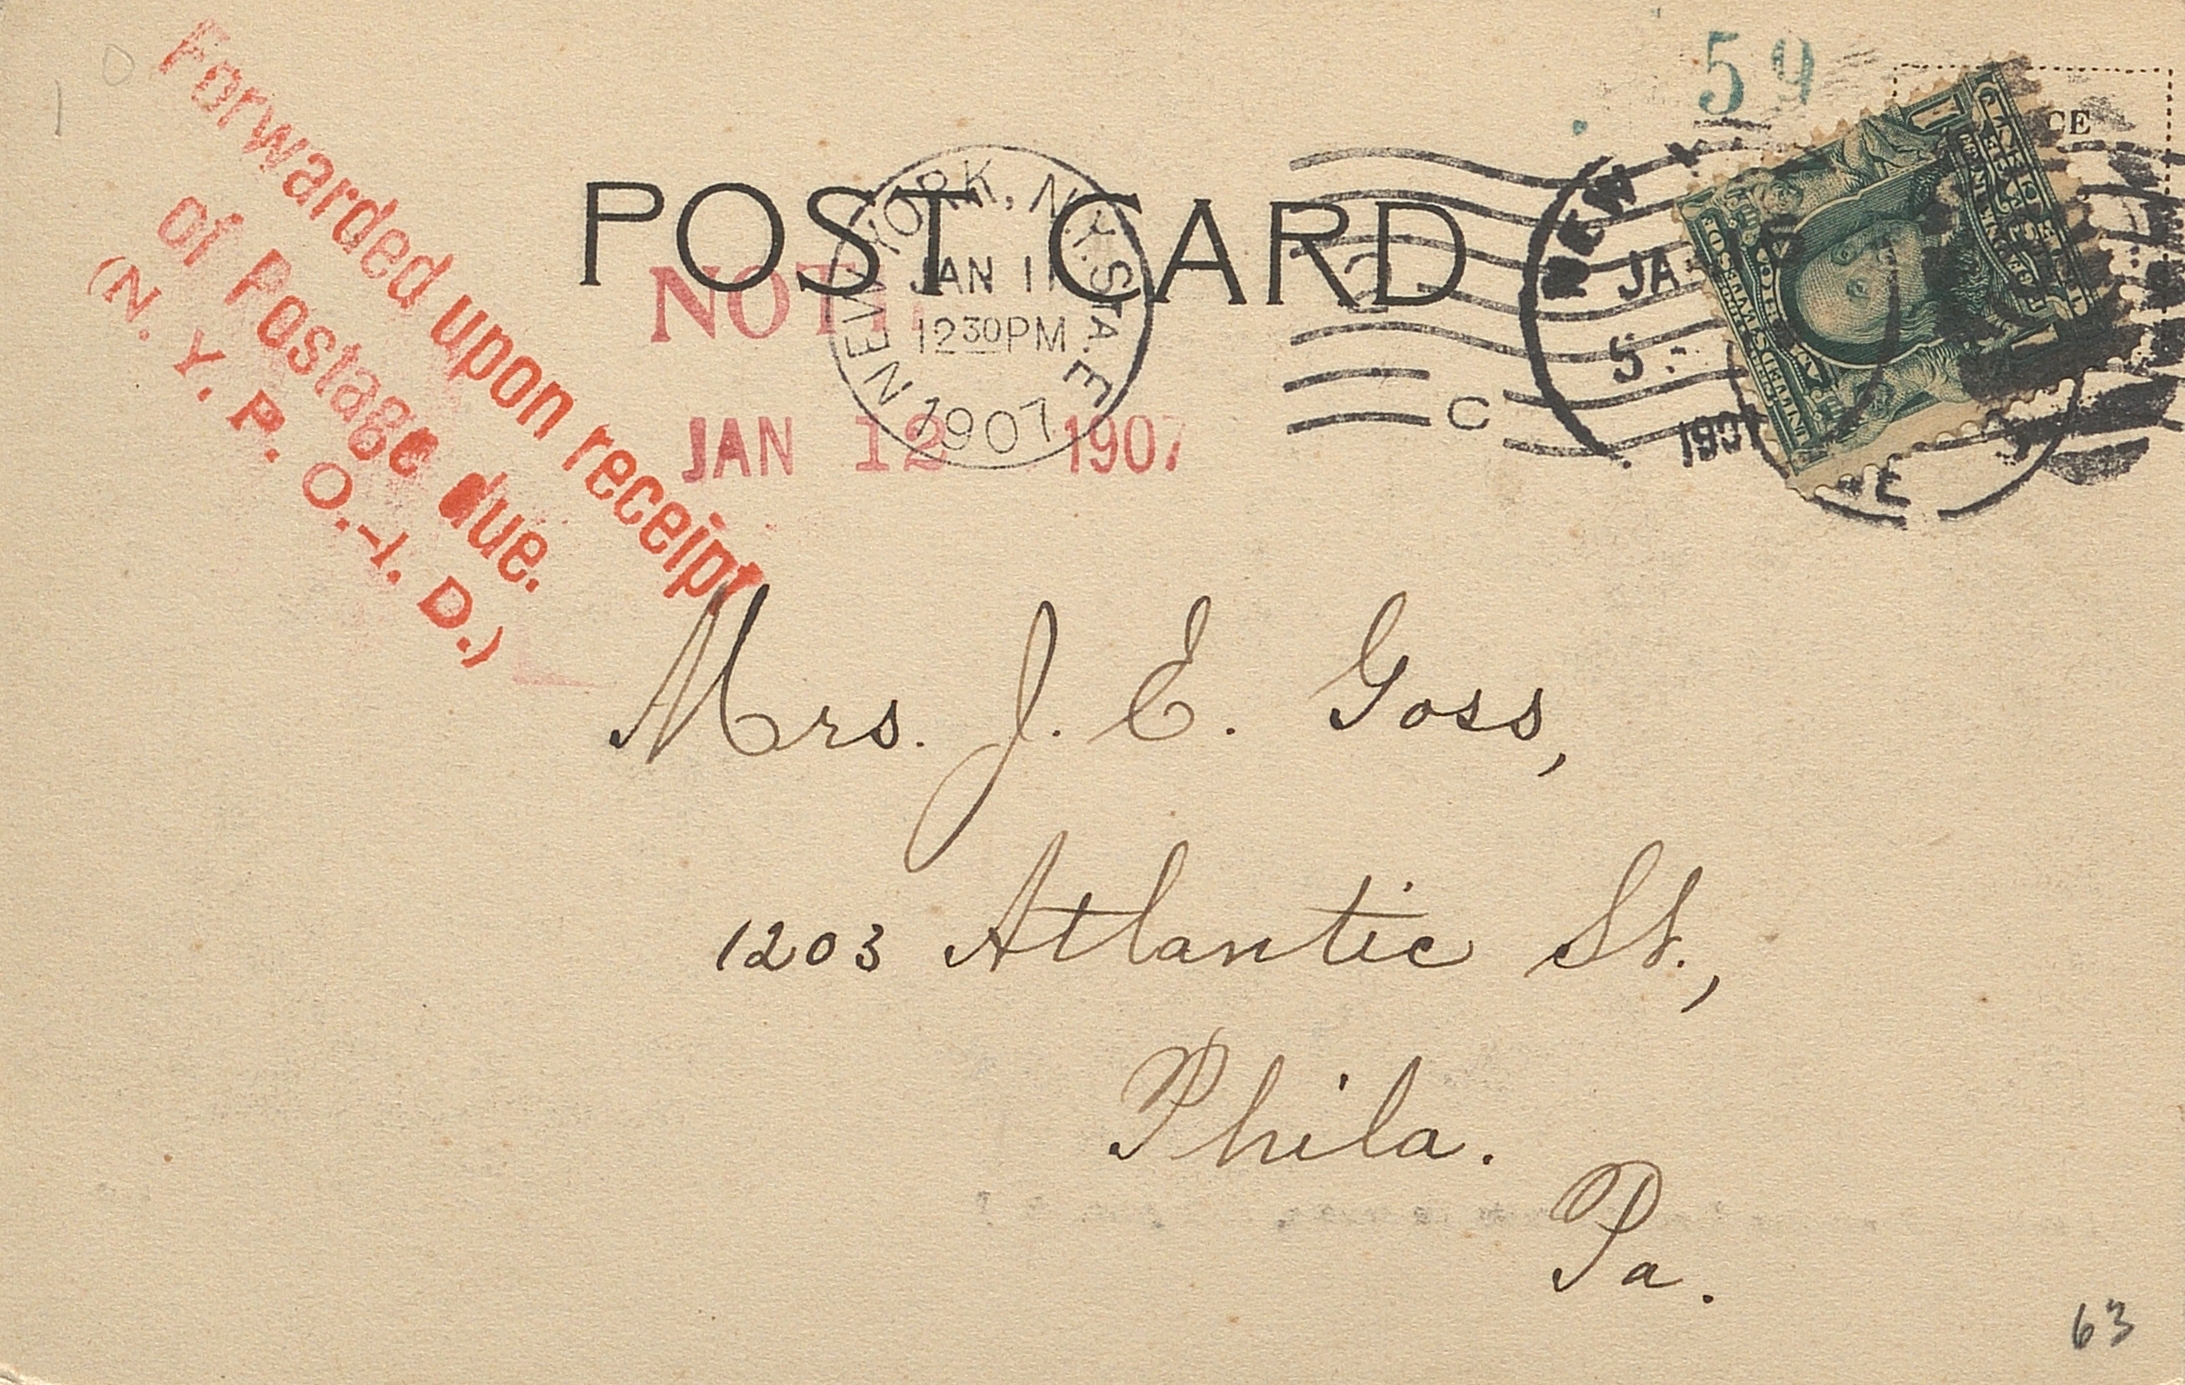 59
Forwarded upon receipt
of Postage due.
(N. Y. P. O.-I. D.)
POST CARD
NEW YORK, N.Y. STA. E
JAN 11
12 30 PM
1907
C
NEW
JA
5
190
JAN 12 1907
Mrs. J. E. Goss,
1203 Atlantic St.,
Phila.
Pa.
63